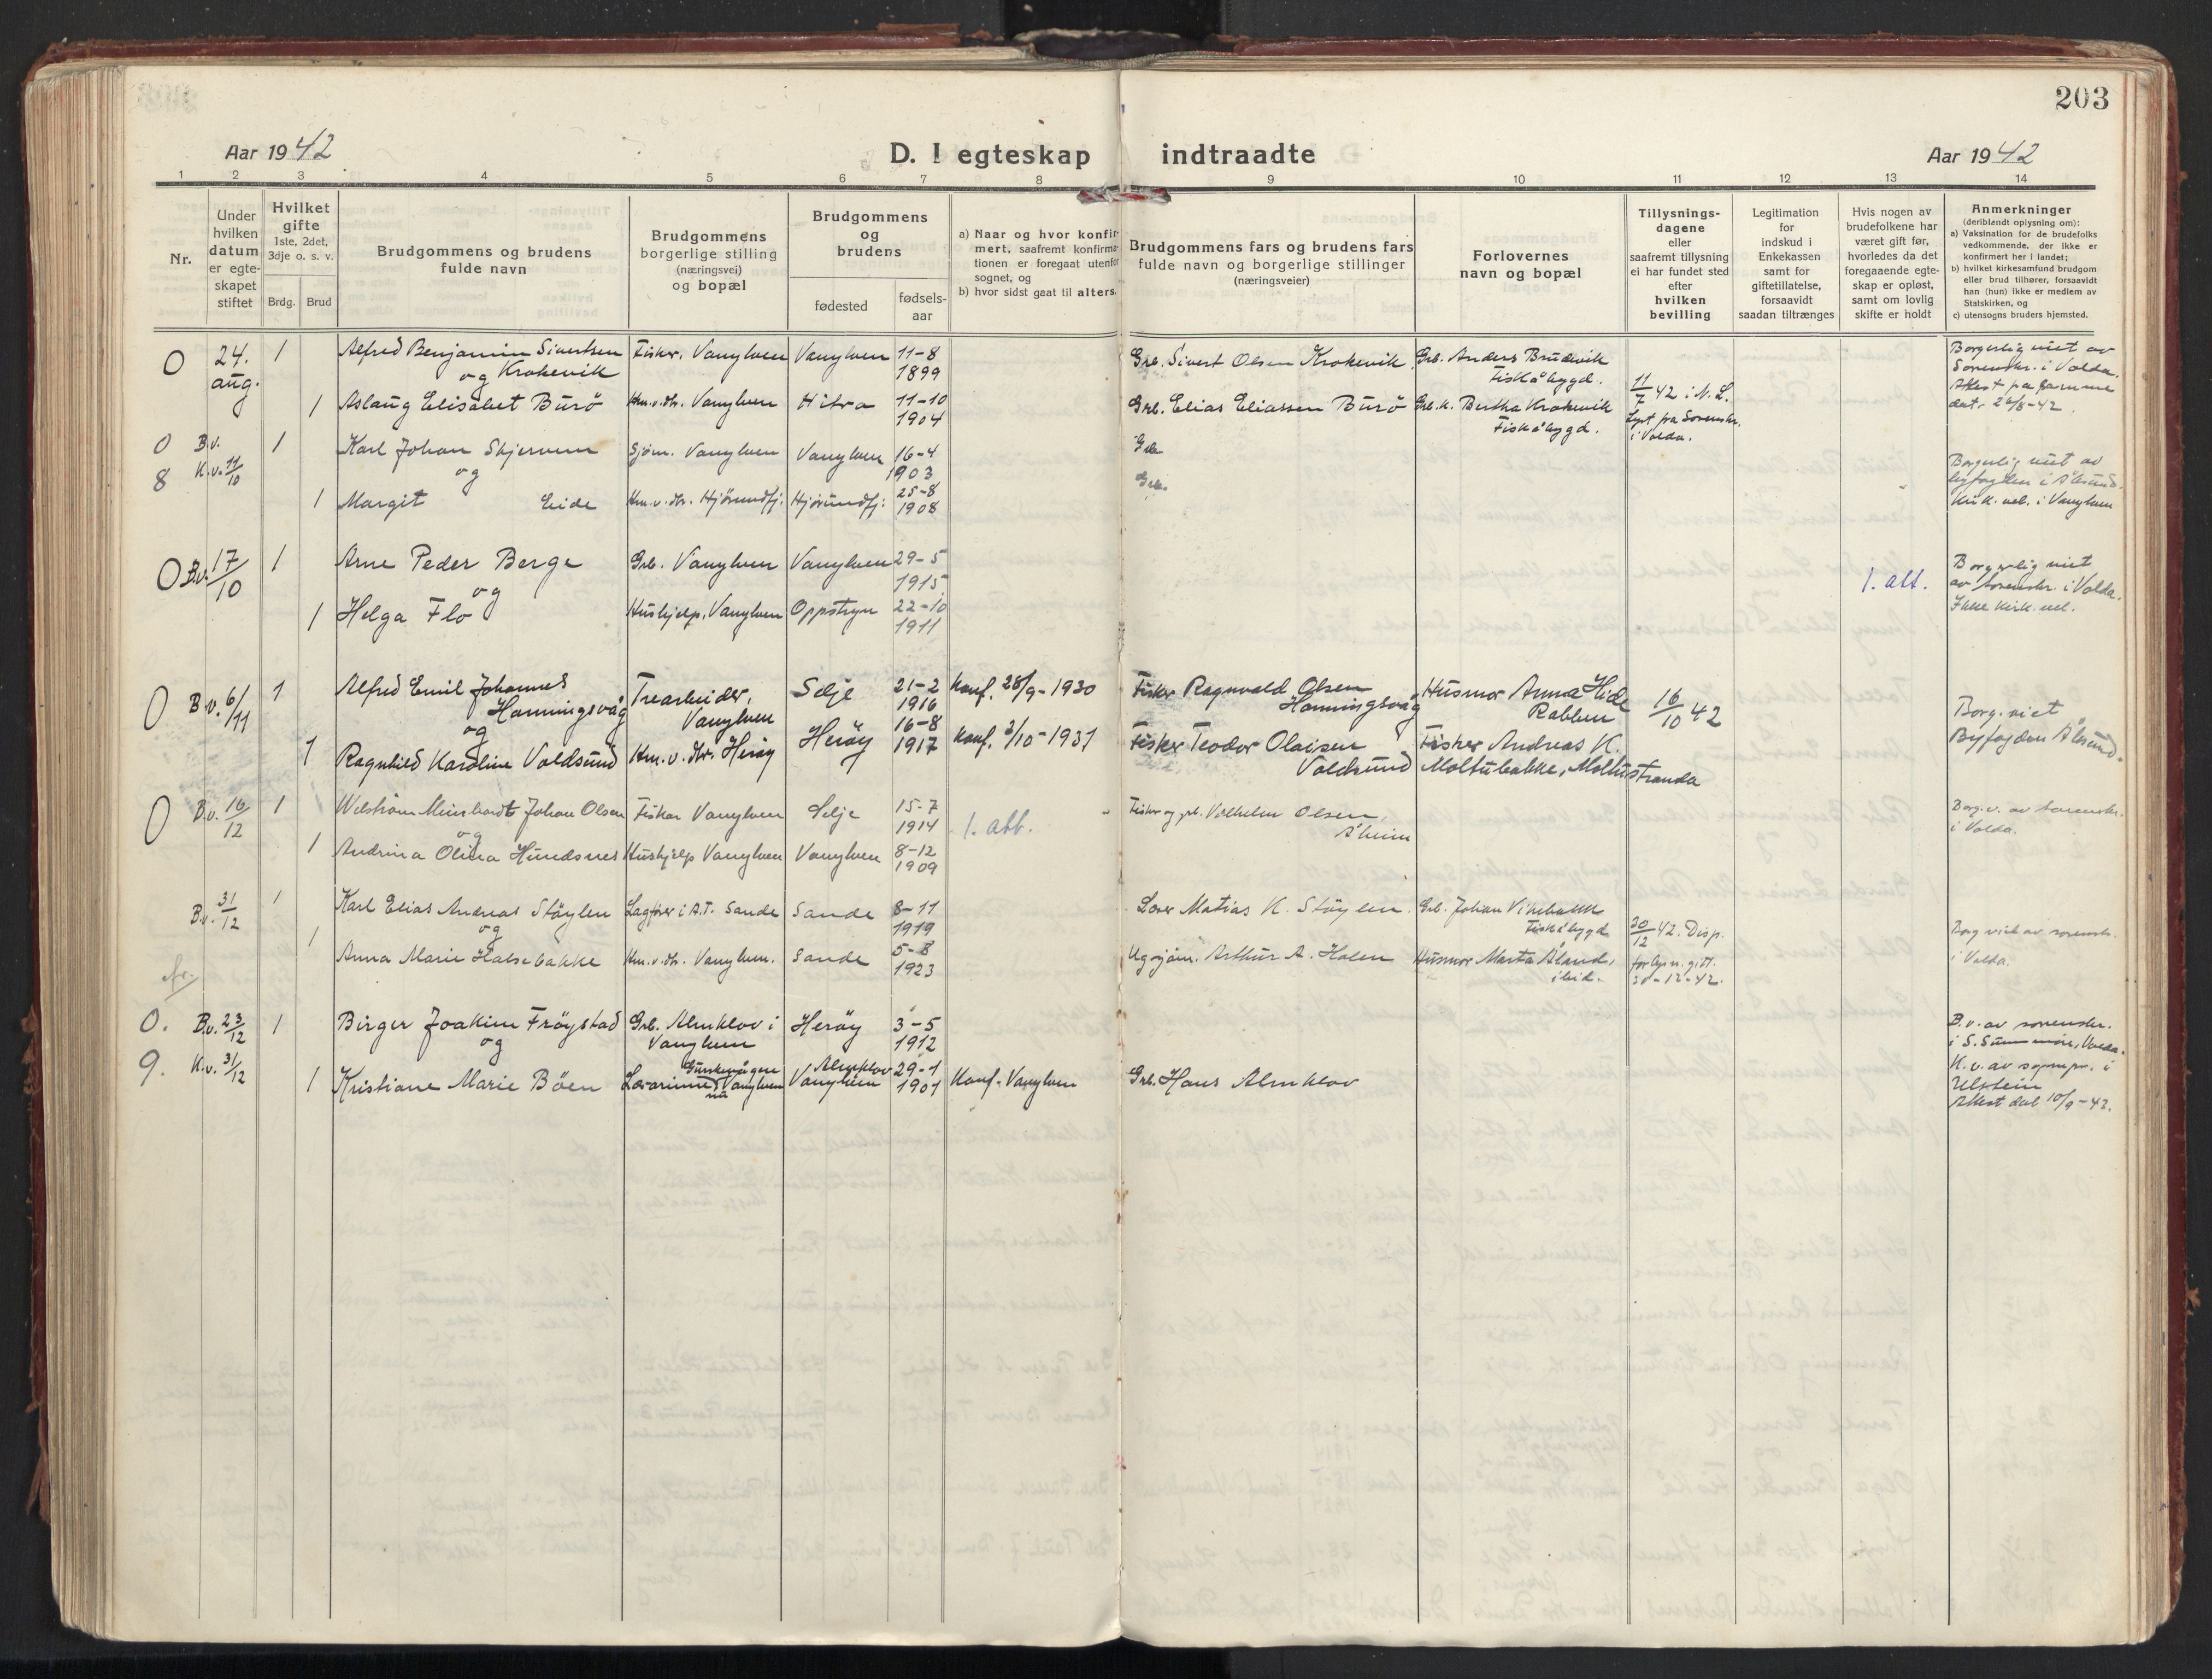 203
Aar 1942
D. I egteskap indtraadte
Aar 1942
1 2 3 4 5 6 7 8 9 10 11 12 13 14
Nr.
Under
hvilken
datum
er egte-
skapet
stiftet
Hvilket
gifte
1ste, 2det,
3dje o. s. v.
Brdg. Brud
Brudgommens og brudens
fulde navn
Brudgommens
borgerlige stilling
(næringsvei)
og bopæl
Brudgommens
og
brudens
fødested
fødsels-
aar
a) Naar og hvor konfir-
mert, saafremt konfirma-
tionen er foregaat utenfor
sognet, og
b) hvor sidst gaat til alters.
Brudgommens fars og brudens fars
fulde navn og borgerlige stillinger
(næringsveier)
Forlovernes
navn og bopæl
Tillysnings-
dagene
eller
saafremt tillysning
ei har fundet sted
efter
hvilken
bevilling
Legitimation
for
indskud i
Enkekassen
samt for
giftetillatelse,
forsaavidt
saadan tiltrænges
Hvis nogen av
brudefolkene har
været gift før,
hvorledes da det
foregaaende egte-
skap er opløst,
samt om lovlig
skifte er holdt
Anmerkninger
(deriblandt oplysning om):
a) Vaksination for de brudefolks
vedkommende, der ikke er
konfirmert her i landet;
b) hvilket kirkesamfund brudgom
eller brud tilhører, forsaavidt
han (hun) ikke er medlem av
Statskirken, og
c) utensogns bruders hjemsted.
0 24. aug. 1 Alfred Benjamin Sivertsen Krokevik
og
Fisker, Vanylven Vanylven 11-8 1899
Grb. Sivert Olsen Krokevik Grb. Anders Brudevik
Fiskåbygd.
Borgerlig viet av
Sorenskr. i Volda.
Attest fra samme
dat. 26/8-42.
1 Aslaug Elisabet Burö Hm.v.dtr. Vanylven Hitra 11-10 1904
Grb. Elias Eliassen Burö Grb.k. Bertha Krokevik
Fiskåbygd.
11/7 42 i N. L.
Lyst fra Sorenskr.
i Volda.
0 B.v. 1 Karl Johan Skjerven Sjöm. Vanylven Vanylven 16-4 1903
Grb.
8 K.v. 11/10
og
1 Margit Eide Hm.v.dtr. Hjørundfj: Hjørundfj: 25-8 1908
Grb.
Borgerlig viet av
byfogden i Ålesund.
Kirk. vel. i Vanylven
0 B.v. 17/10 1 Arne Peder Berge Grb. Vanylven Vanylven 29-5 1915
og
1 Helga Flo Hushjelp, Vanylven Oppstryn 22-10 1911
1. att.
Borgerlig viet
av sorenskr. i Volda.
Ikke kirk. vel.
0 B.v. 6/11 1 Alfred Emil Johannes
Honningsvåg
og
Trearbeider,
Vanylven
Selje 21-2 1916 Konf. 28/9-1930
Fisker Ragnvald Olsen
Honningsvåg
Husmor Anna Hide
Rabben
16/10 42
1 Ragnhild Karoline Voldsund Hm.v.dtr. Herøy Herøy 16-8 1917 Konf. 3/10-1931
Fisker Teodor Olaisen
Voldsund
Fisker Andreas K.
Moltubakke, Moltustranda
Borg. viet
Byfogden Ålesund.
0 B.v. 16/12 1 Meinhardt Johan Olsen Fisker Vanylven Selje 15-7 1914
og
1. att.
Fisker og grb. Vilhelm Olsen,
Åheim
1 Andrina Olina Hundsnes Hushjelp Vanylven Vanylven 8-12 1909
Borg. v. av sorenskr.
i Volda.
B.v. 31/12 1 Karl Elias Andreas Støylen Lagfører i A.T. Sande Sande 8-11 1919
og
Lærer Matias K. Støylen Grb. Johan Vikebakk
Fiskåbygd
1 Anna Marie Halsebakke Hm.v.dtr. Vanylven. Sande 5-8 1923
Arthur A. Halen Husmor Marta Åland,
ibid.
30/12 42. Disp.
for lysn. gitt.
30-12-42.
Borg viet av sorenskr.
i Volda.
0. B.v. 23/12 1 Birger Joakim Frøystad Grb. Almklov i
Vanylven
Herøy 3-5 1912
og
9. K.v. 31/12 1 Kristiane Marie Böen Lærarinne Gurskevågen
nå Vanylven
Almklov
Vanylven 29-1 1901 Konf. Vanylven
Grb. Hans Almklov
B.v. av sorenskr.
i S. Sunnmøre, Volda.
K.v. av sognepr. i
Ulstein
Attest dat 10/9-43.